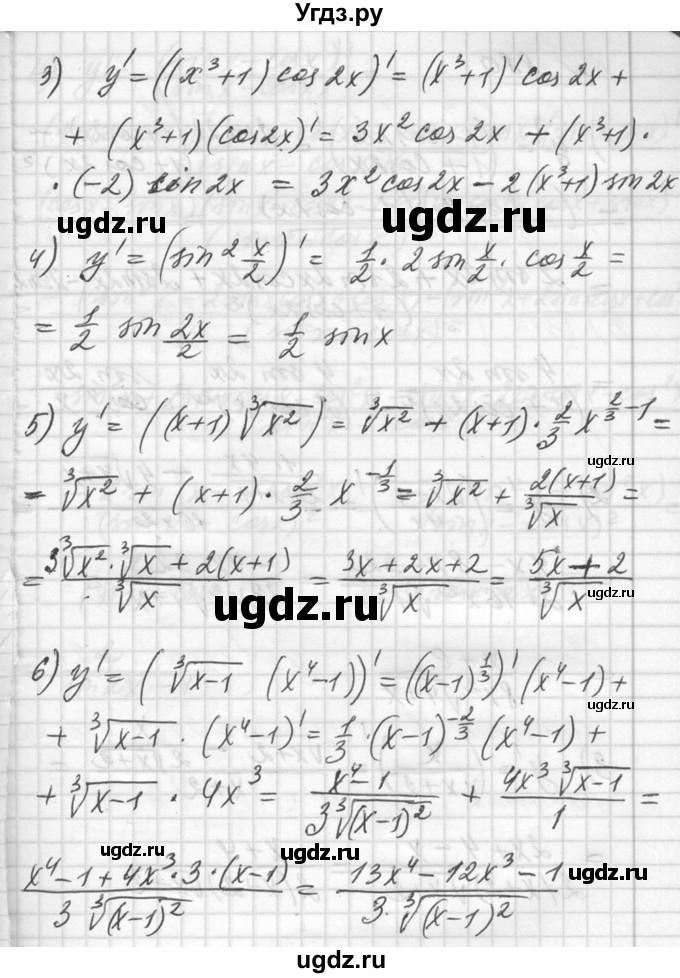 Угдз.ру
3) y' = ((x³+1) cos 2x)' = (x³+1)' cos 2x +
+ (x³+1)(cos 2x)' = 3x² cos 2x + (x³+1)·
· (-2) sin 2x = 3x² cos 2x - 2(x³+1) sin 2x
ugdz.ru ugdz.ru
4) y' = (sin² x/2)' = 1/2 · 2 sin x/2 · cos x/2 =
= 1/2 sin 2x/2 = 1/2 sin x
5) y' = ((x+1) ∛x²) = ∛x² + (x+1) · 2/3 x^(2/3 - 1) =
ugdz.ru
= ∛x² + (x+1) · 2/3 x^(-1/3) = ∛x² + 2(x+1)/∛x =
= (3∛x² · ∛x + 2(x+1))/∛x = (3x+2x+2)/∛x = (5x+2)/∛x
ugdz.ru ugdz.ru
6) y' = (∛(x-1) (x⁴-1))' = ((x-1)^(1/3))' (x⁴-1) +
+ ∛(x-1) · (x⁴-1)' = 1/3 · (x-1)^(-2/3) (x⁴-1) +
+ ∛(x-1) · 4x³ = (x⁴-1)/(3∛(x-1)²) + (4x³ ∛(x-1))/1 =
ugdz.ru ugdz.ru
(x⁴-1+4x³·3·(x-1))/(3∛(x-1)²) = (13x⁴-12x³-1)/(3·∛(x-1)²)
ugdz.ru